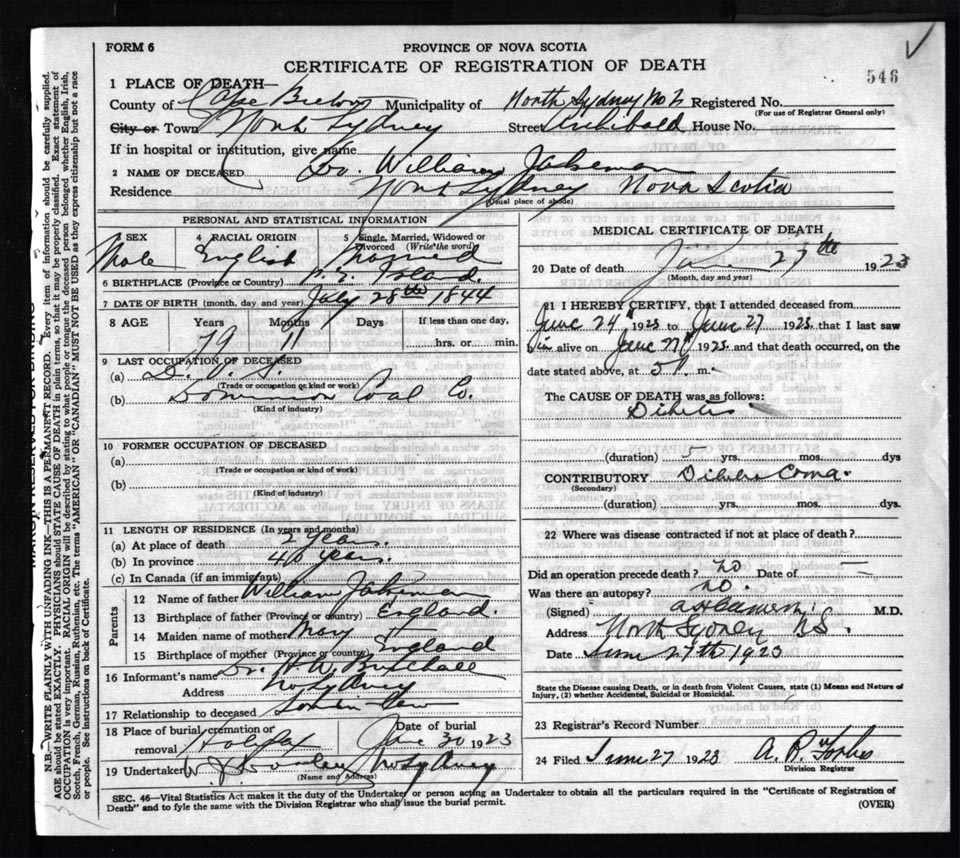 FORM 6
PROVINCE OF NOVA SCOTIA
CERTIFICATE OF REGISTRATION OF DEATH
546
1 PLACE OF DEATH—
County of Cape Breton Municipality of North Sydney No 2 Registered No.
(For use of Registrar General only)
City or Town North Sydney Street Archibald House No.
If in hospital or institution, give name
2 NAME OF DECEASED Dr. William Jakeman
Residence North Sydney Nova Scotia
(Usual place of abode)
PERSONAL AND STATISTICAL INFORMATION
3 SEX Male
4 RACIAL ORIGIN English
5 Single, Married, Widowed or Divorced (Write the word) Married
6 BIRTHPLACE (Province or Country) P. E. Island
7 DATE OF BIRTH (month, day, and year) July 28th 1844
8 AGE Years Months Days If less than one day,
79 11 hrs. or min.
9 LAST OCCUPATION OF DECEASED
(a) D. V. S.
(Trade or occupation or kind or work)
(b) Dominion Coal Co.
(Kind of industry)
10 FORMER OCCUPATION OF DECEASED
(a)
(Trade or occupation or kind or work)
(b)
(Kind of industry)
11 LENGTH OF RESIDENCE (In years and months)
(a) At place of death 2 Years.
(b) In province 40 Years.
(c) In Canada (if an immigrant)
Parents
12 Name of father William Jakeman
13 Birthplace of father (Province or country) England.
14 Maiden name of mother Mary
15 Birthplace of mother (Province or country) England
16 Informant's name Dr. H. W. Birchall
Address No Sydney
17 Relationship to deceased Son in law
18 Place of burial, cremation or removal Halifax
Date of burial June 30 1923
19 Undertaker No Sydney
(Name and Address)
MEDICAL CERTIFICATE OF DEATH
20 Date of death 27th 1923
(Month, day and year)
21 I HEREBY CERTIFY, that I attended deceased from
June 24 1923 to June 27 1923 that I last saw
him alive on June 27 1923 and that death occurred, on the
date stated above, at m.
The CAUSE OF DEATH was as follows:
(duration) 5 yrs. mos. dys
CONTRIBUTORY Coma.
(Secondary)
(duration) yrs. mos. dys.
22 Where was disease contracted if not at place of death?
Did an operation precede death? No Date of
Was there an autopsy? No.
(Signed) M.D.
Address North Sydney N.S.
Date June 27th 1923
State the Disease causing Death, or in death from Violent Causes, state (1) Means and Nature of
Injury, (2) whether Accidental, Suicidal or Homicidal.
23 Registrar's Record Number
24 Filed June 27 1923 A. R. Forbes
Division Registrar
SEC. 46—Vital Statistics Act makes it the duty of the Undertaker or person acting as Undertaker to obtain all the particulars required in the "Certificate of Registration of
Death" and to fyle the same with the Division Registrar who shall issue the burial permit.
(OVER)
N.B.—WRITE PLAINLY WITH UNFADING INK—THIS IS A PERMANENT RECORD. Every item of information should be carefully supplied.
AGE should be stated EXACTLY. PHYSICIANS should STATE CAUSE OF DEATH in plain terms, so that it may be properly classified. Exact statement of
OCCUPATION is very important. RACIAL ORIGIN will be described by stating to what people or tongue the deceased person belonged whether English, Irish,
Scotch, French, German, Russian, Ruthenian, etc. The terms "AMERICAN" OR "CANADIAN" MUST NOT BE USED as they express citizenship but not a race
or people. See instructions on back of Certificate.